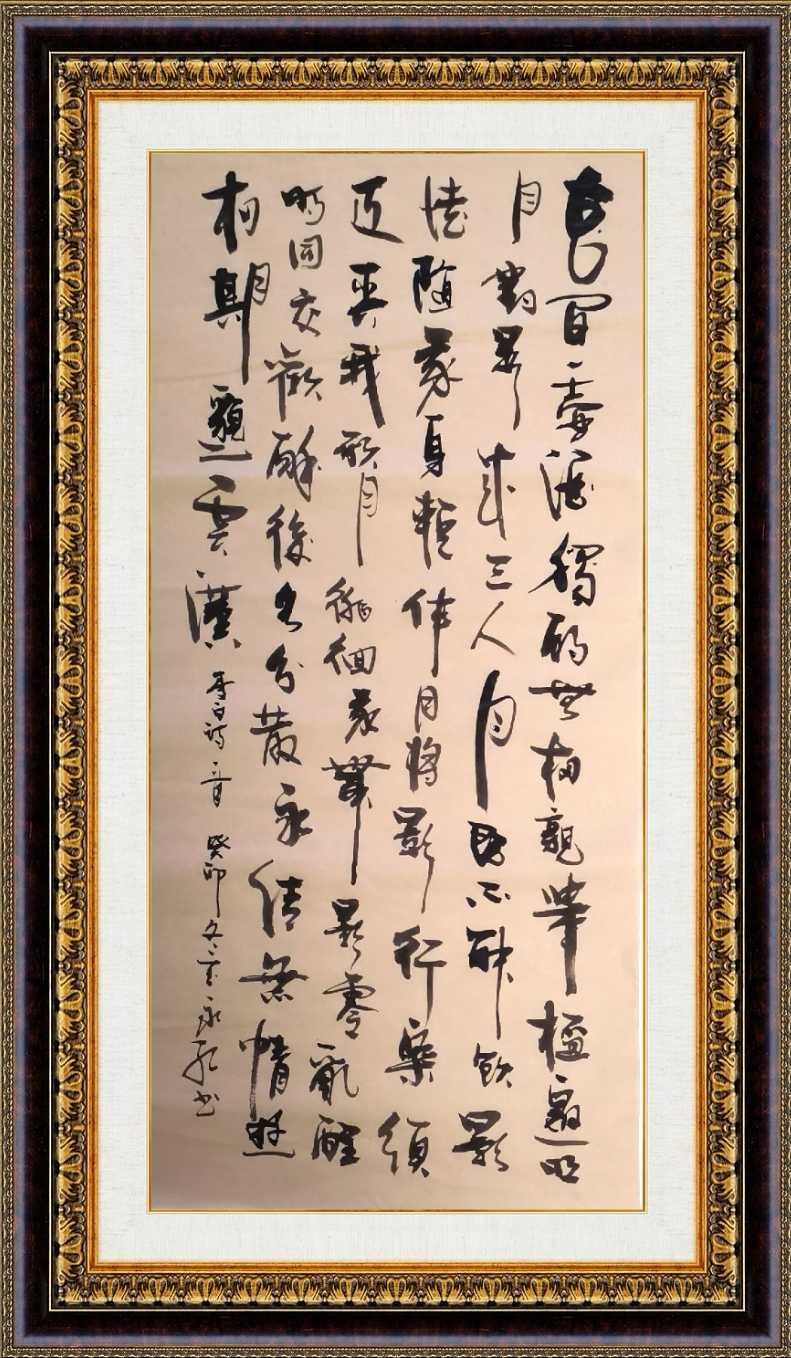 花間一壺酒獨酌無相親舉杯邀明
月對影成三人月既不解飲影
徒隨我身暫伴月將影行樂須
及春我歌月徘徊我舞影零亂醒
時同交歡醉後各分散永結無情遊
相期邈雲漢 李白詩一首 癸卯冬 永 书